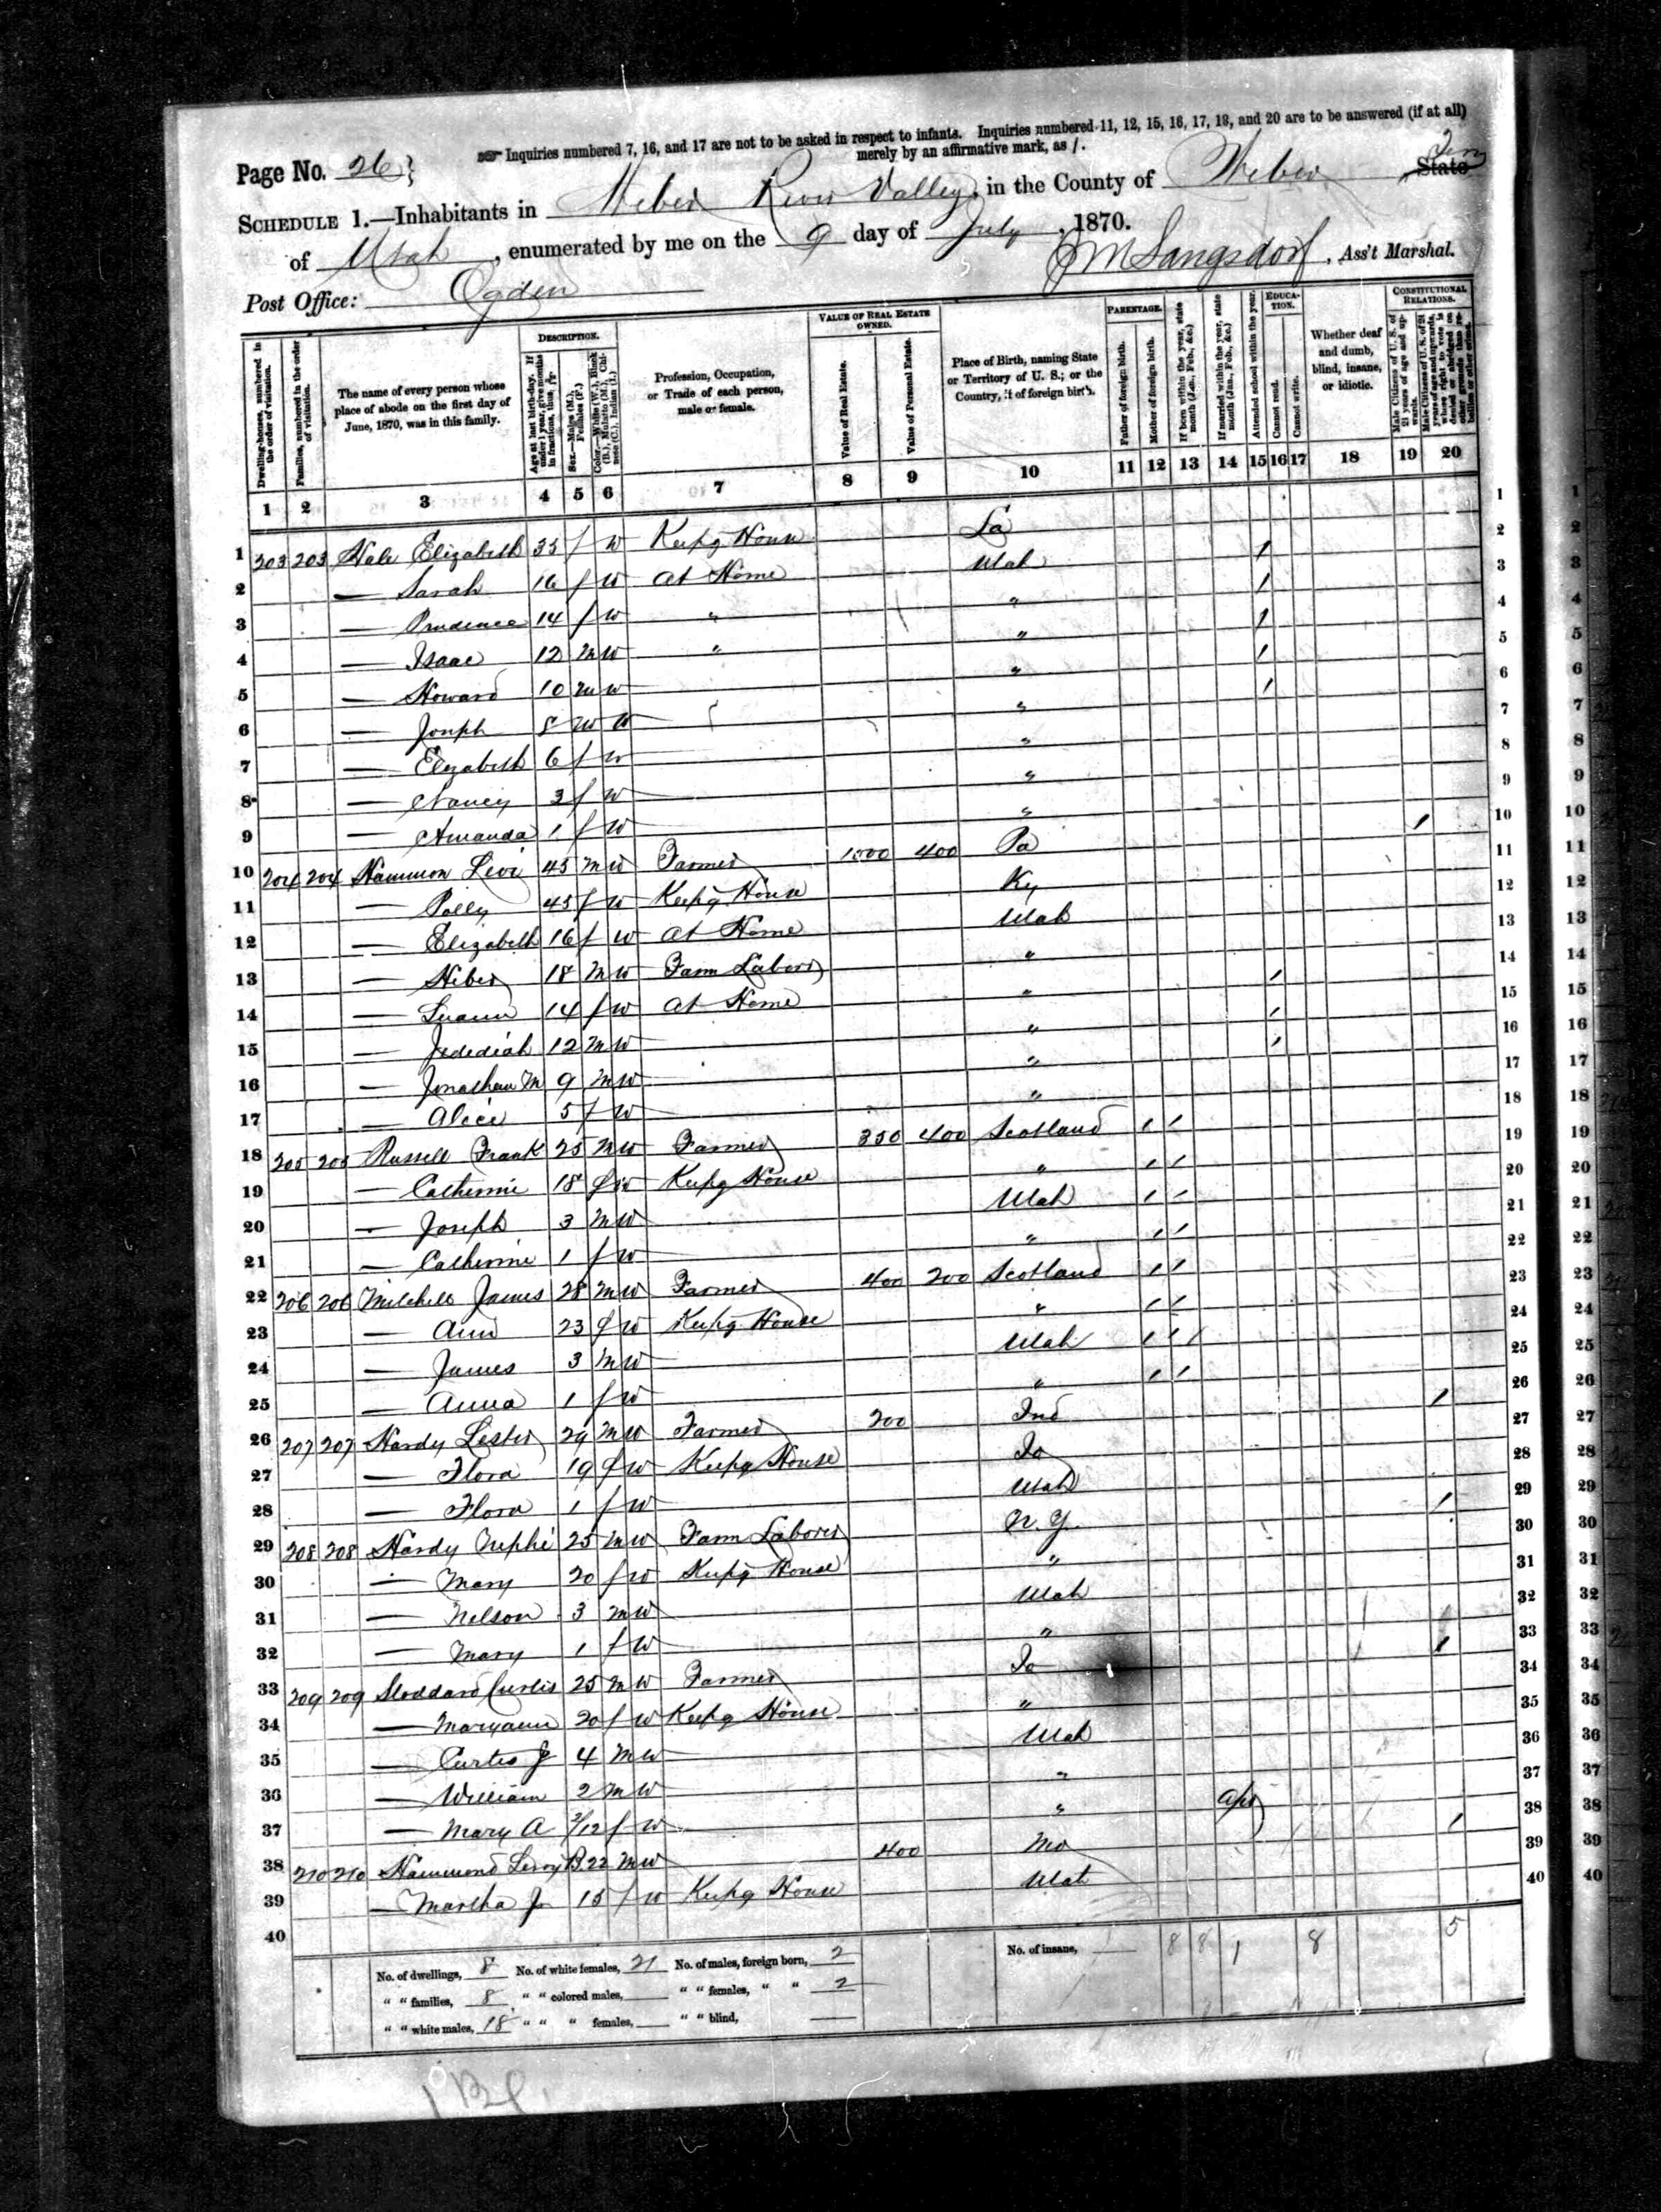 ☞ Inquiries numbered 7, 16, and 17 are not to be asked in respect to infants. Inquiries numbered 11, 12, 15, 16, 17, 19, and 20 are to be answered (if at all)
merely by an affirmative mark, as /.
Page No. 26
SCHEDULE 1.—Inhabitants in Weber River Valley, in the County of Weber State Ter
of Utah, enumerated by me on the 9 day of July, 1870.
Post Office: Ogden
Langsdorf, Ass't Marshal.
Dwelling-houses, numbered in the order of visitation.
Families, numbered in the order of visitation.
The name of every person whose place of abode on the first day of June, 1870, was in this family.
DESCRIPTION.
Age at last birth-day. If under 1 year, give months in fractions, thus, 3/12
Sex.—Males (M.), Females (F.)
Color.—White (W.), Black (B.), Mulatto (M.), Chinese (C.), Indian (I.)
Profession, Occupation, or Trade of each person, male or female.
VALUE OF REAL ESTATE OWNED.
Value of Real Estate.
Value of Personal Estate.
Place of Birth, naming State or Territory of U. S.; or the Country, if of foreign birth.
PARENTAGE.
Father of foreign birth.
Mother of foreign birth.
If born within the year, state month (Jan., Feb., &c.)
If married within the year, state month (Jan., Feb., &c.)
Attended school within the year.
EDUCATION.
Cannot read.
Cannot write.
Whether deaf and dumb, blind, insane, or idiotic.
CONSTITUTIONAL RELATIONS.
Male Citizens of U. S. of 21 years of age and upwards.
Male Citizens of U. S. of 21 years of age and upwards, whose right to vote is denied or abridged on other grounds than rebellion or other crime.
1 2 3 4 5 6 7 8 9 10 11 12 13 14 15 16 17 18 19 20
1 203 203 Hale Elizabeth 35 f W Keepg House La
2 — Sarah 16 f W At Home Utah /
3 — Prudence 14 f W " " /
4 — Isaac 12 M W " " /
5 — Howard 10 M W " /
6 — Joseph 8 M W " /
7 — Elizabeth 6 f W "
8 — Nancy 3 f W "
9 — Amanda 1 f W "
10 204 204 Hammon Levi 45 M W Farmer 1000 400 Pa /
11 — Polly 45 f W Keepg House Ky
12 — Elizabeth 16 f W At Home Utah
13 — Heber 18 M W Farm Laborer "
14 — Luann 14 f W At Home " /
15 — Jedediah 12 M W " /
16 — Jonathan M 9 M W " /
17 — Alice 5 f W "
18 205 205 Russell Frank 25 M W Farmer 350 400 Scotland / /
19 — Catherine 18 f W Keepg House " / /
20 — Joseph 3 M W Utah / /
21 — Catherine 1 f W " / /
22 206 206 Mitchell James 28 M W Farmer 400 200 Scotland / /
23 — Ann 23 f W Keepg House " / /
24 — James 3 M W Utah / / /
25 — Anna 1 f W " / /
26 207 207 Hardy Lester 24 M W Farmer 200 Ind /
27 — Flora 19 f W Keepg House Io
28 — Flora 1 f W Utah
29 208 208 Hardy Nephi 25 M W Farm Laborer N. Y. /
30 — Mary 20 f W Keepg House "
31 — Nelson 3 M W Utah
32 — Mary 1 f W "
33 209 209 Stoddard Curtis 25 M W Farmer Io /
34 — Maryann 20 f W Keepg House "
35 — Curtis J 4 M W Utah
36 — William 2 M W "
37 — Mary A 2/12 f W " Apr
38 210 210 Hammond Leroy B. 22 M W 400 Mo /
39 — Martha J 15 f W Keepg House Utah
40
No. of dwellings, 8 No. of white females, 21 No. of males, foreign born, 2 No. of insane, 8 8 1 8 5
" " families, 8 " " colored males, " " females, " " 2
" " white males, 18 " " " females, " " blind,